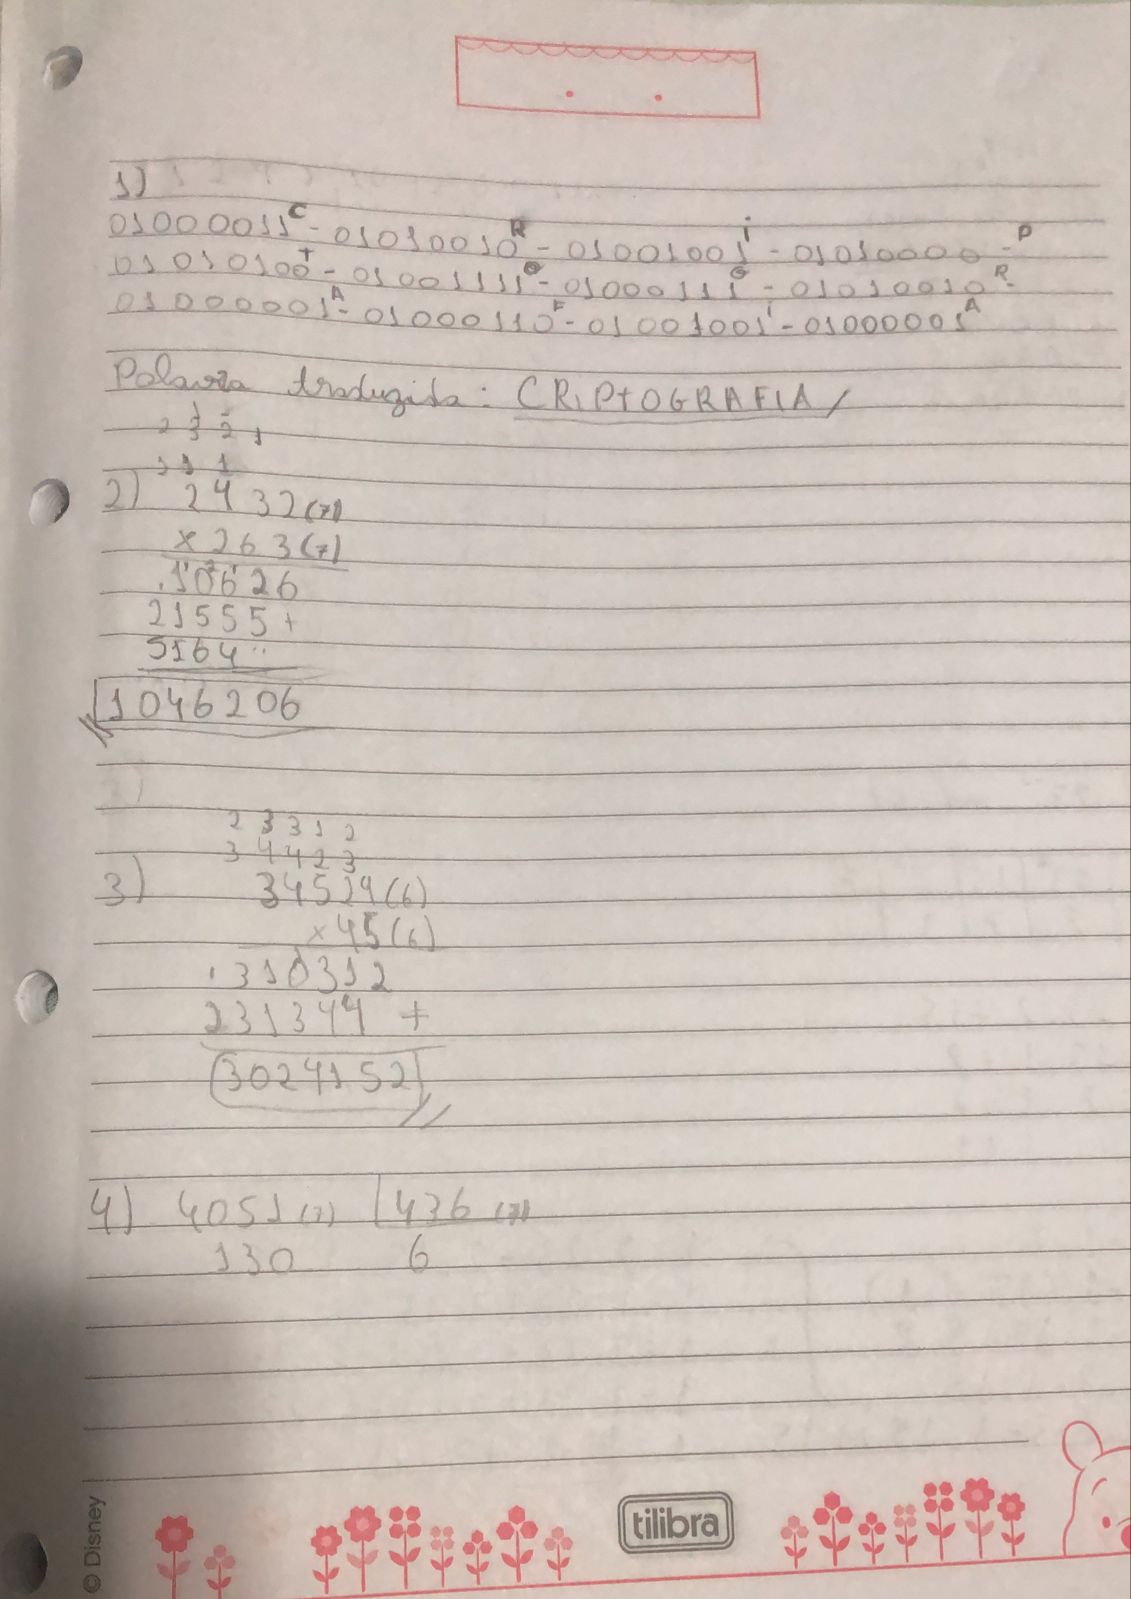 1)
01000011 C - 01010010 R - 01001001 i - 01010000 - P
01010100 t - 01001111 O - 01000111 G - 01010010 R -
01000001 A - 01000110 F - 01001001 i - 01000001 A
Palavra traduzida: CRiPtOGRAFIA/
1 2
2 3 2 1
1 1 1
2) 2432(7)
x 263(7)
10626
21555+
5164..
1046206
2 3 3 1 2
3 4 4 2 3
3) 34524(6)
x 45(6)
310312
231344 +
3024152
4) 4051(7) 436(7)
130 6
© Disney
tilibra